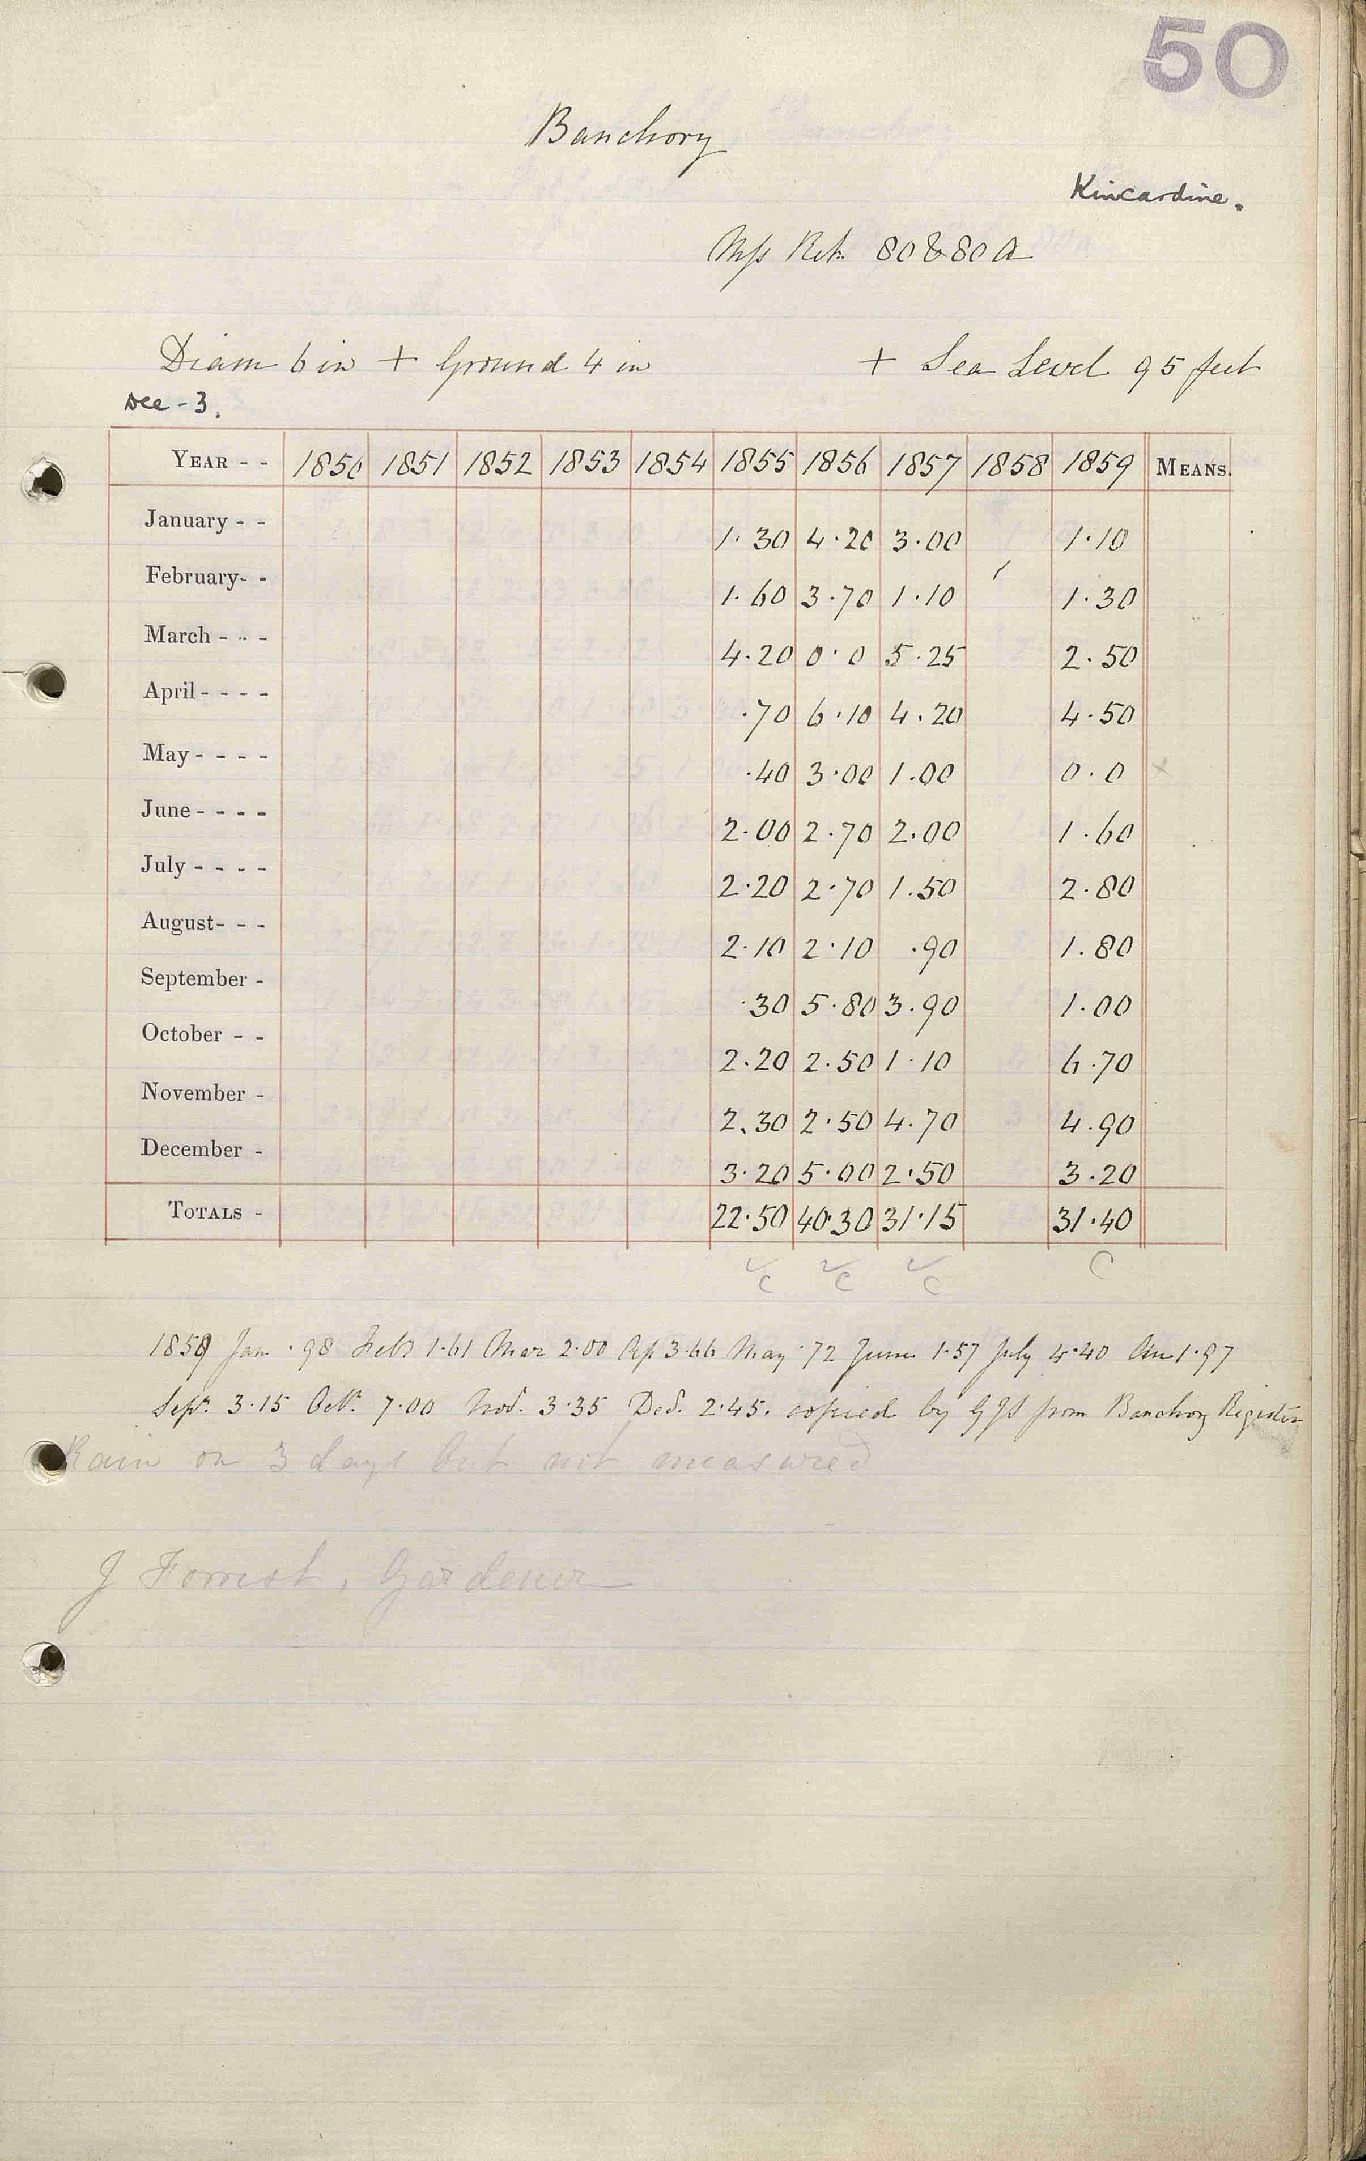 50
Banchory
Kincardine.
Mss Ret. 80 & 80 A
Diam 6 in + Ground 4 in + Sea Level 95 feet
Dee - 3.
YEAR - - 1850 1851 1852 1853 1854 1855 1856 1857 1858 1859 MEANS.
January - - 1.30 4.20 3.00 1.10
February- - 1.60 3.70 1.10 1.30
March - - - 4.20 0.0 5.25 2.50
April - - - - .70 6.10 4.20 4.50
May - - - - .40 3.00 1.00 0.0 x
June - - - - 2.00 2.70 2.00 1.60
July - - - - 2.20 2.70 1.50 2.80
August- - - 2.10 2.10 .90 1.80
September - .30 5.80 3.90 1.00
October - - 2.20 2.50 1.10 6.70
November - 2.30 2.50 4.70 4.90
December - 3.20 5.00 2.50 3.20
TOTALS - 22.50 40.30 31.15 31.40
C C C C
1859 Jan .98 Feb 1.61 Mar 2.00 Ap 3.66 May .72 June 1.57 July 4.40 Au 1.97
Sept. 3.15 Oct. 7.00 Nov. 3.35 Dec. 2.45. copied by GJS from Banchory Register
Rain on 3 days but not measured
J Forrest, Gardener